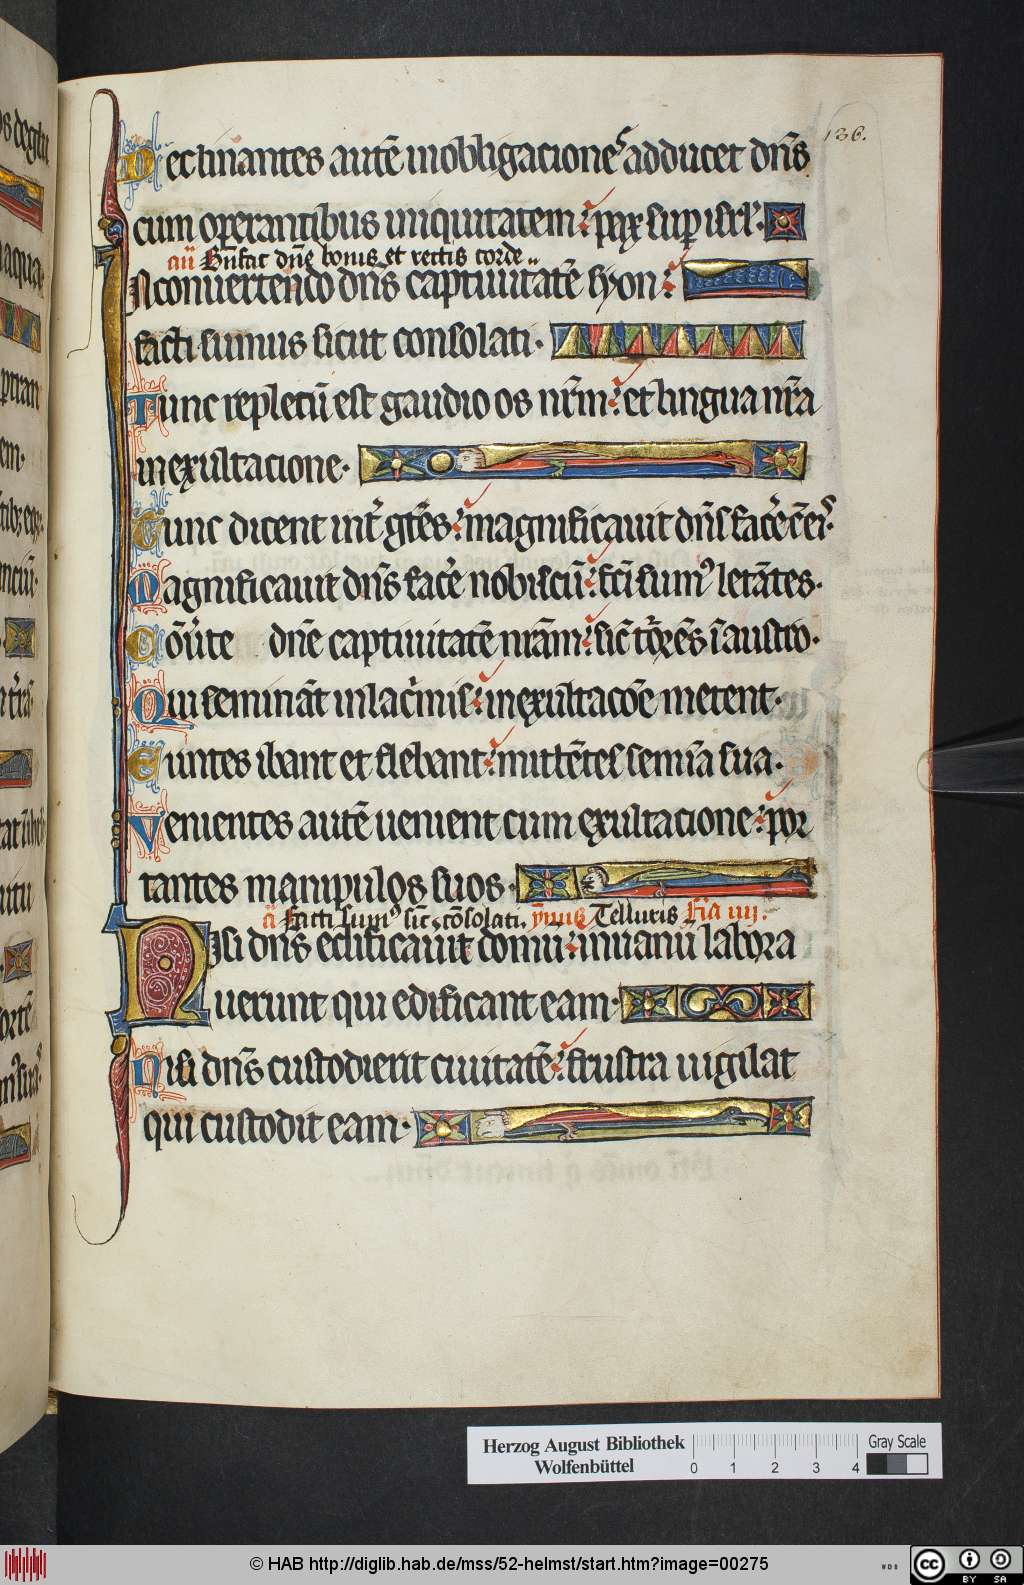 136.
Declinantes autē inobligacionēs adducet dn̄s
cum operantibus iniquitatem: pax sup isrl'.
an̄ Bn̄fac dn̄e bonis et rectis corde
In conuertendo dn̄s captiuitatē syon:
facti sumus sicut consolati.
Tunc repletū est gaudio os nr̄m: et lingua nr̄a
in exultacione.
Tunc dicent int' gētes: magnificauit dn̄s facē cū eis.
Magnificauit dn̄s facē nobiscū: fc̄i sumꝰ letātes.
Cōūte dn̄e captiuitatē nrām: sic̄ tōrēs ī austro.
Qui seminānt in lac'mis: in exultacōe metent.
Euntes ibant et flebant: mittētes semīa sua.
Venientes autē uenient cum exultacione: por
tantes manipulos suos.
a Facti sumꝰ sic̄ cōsolati. ymnꝰ Telluris F'ia iiij.
Nisi dn̄s edificauit domū: in uanū labora
uerunt qui edificant eam.
Nisi dn̄s custodierit ciuitatē: frustra uigilat
qui custodit eam.
Herzog August Bibliothek
Wolfenbüttel
0 1 2 3 4
Gray Scale
© HAB http://diglib.hab.de/mss/52-helmst/start.htm?image=00275
WDB
CC BY SA